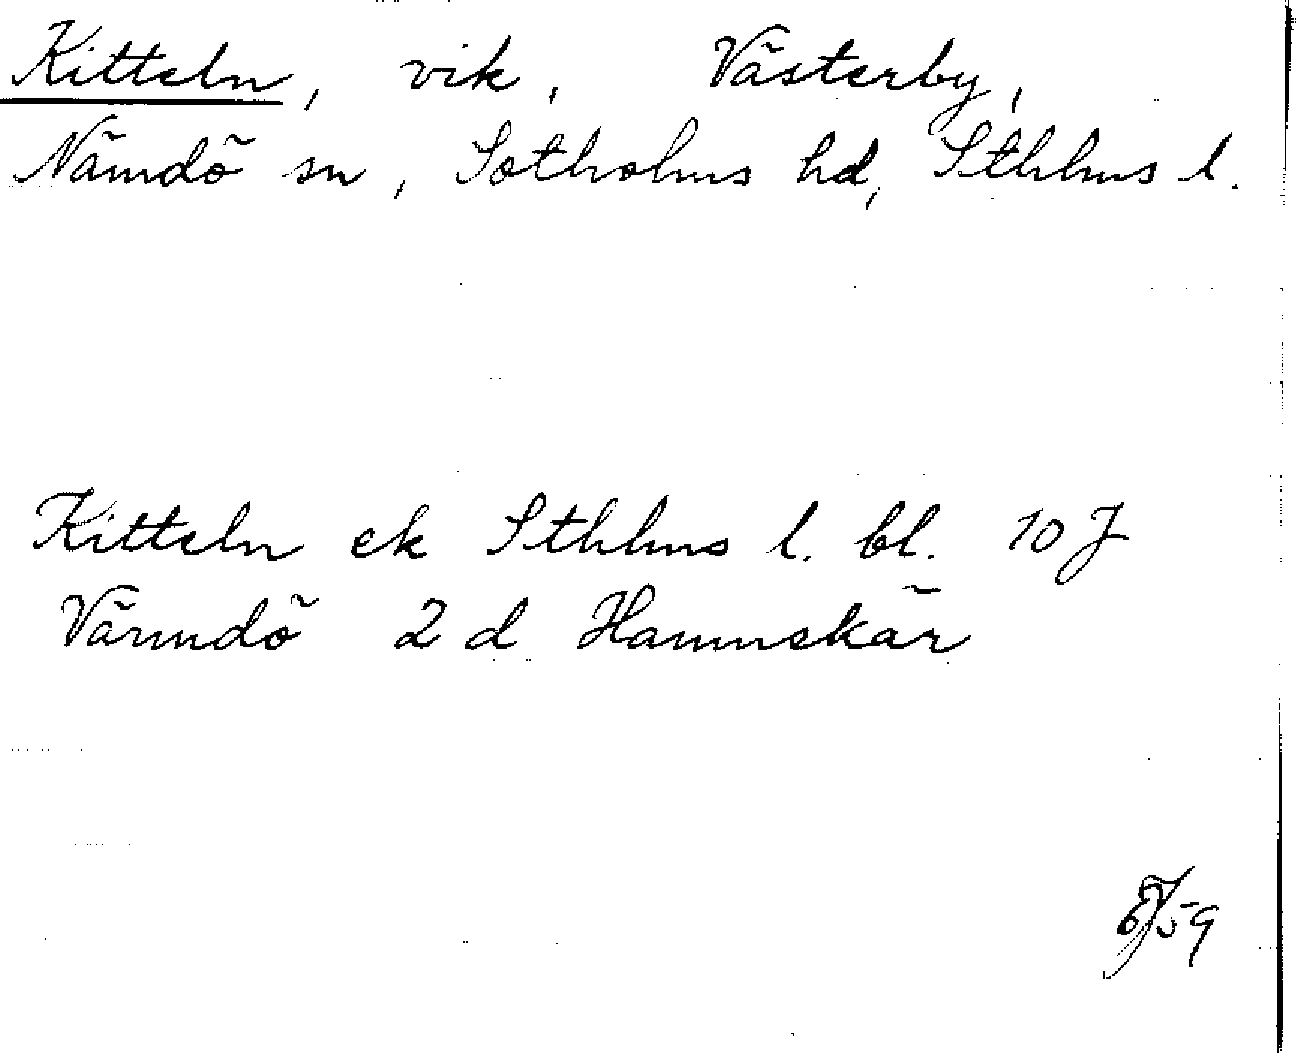 Kitteln, vik, Västerby,
Nämdö sn, Sotholms hd, Sthlms l.
Kitteln ek Sthlms l. bl. 10 J
Värmdö 2 d Hamnskär
59